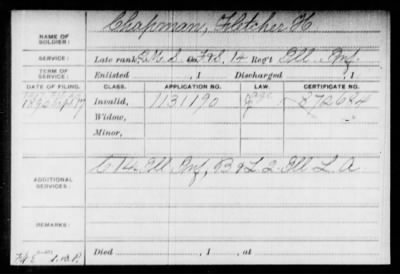 NAME OF SOLDIER: Chapman, Fletcher H
SERVICE: Late rank, Q.M.S. Co. F&S, 14 Reg't Ill Inf.
TERM OF SERVICE: Enlisted , 1 Discharged , 1
DATE OF FILING. CLASS. APPLICATION NO. LAW. CERTIFICATE NO.
Invalid, 1131190 872684
Widow,
Minor,
ADDITIONAL SERVICES: C 14 Ill Inf, B & L 2 Ill L. A.
REMARKS:
Died , 1 , at